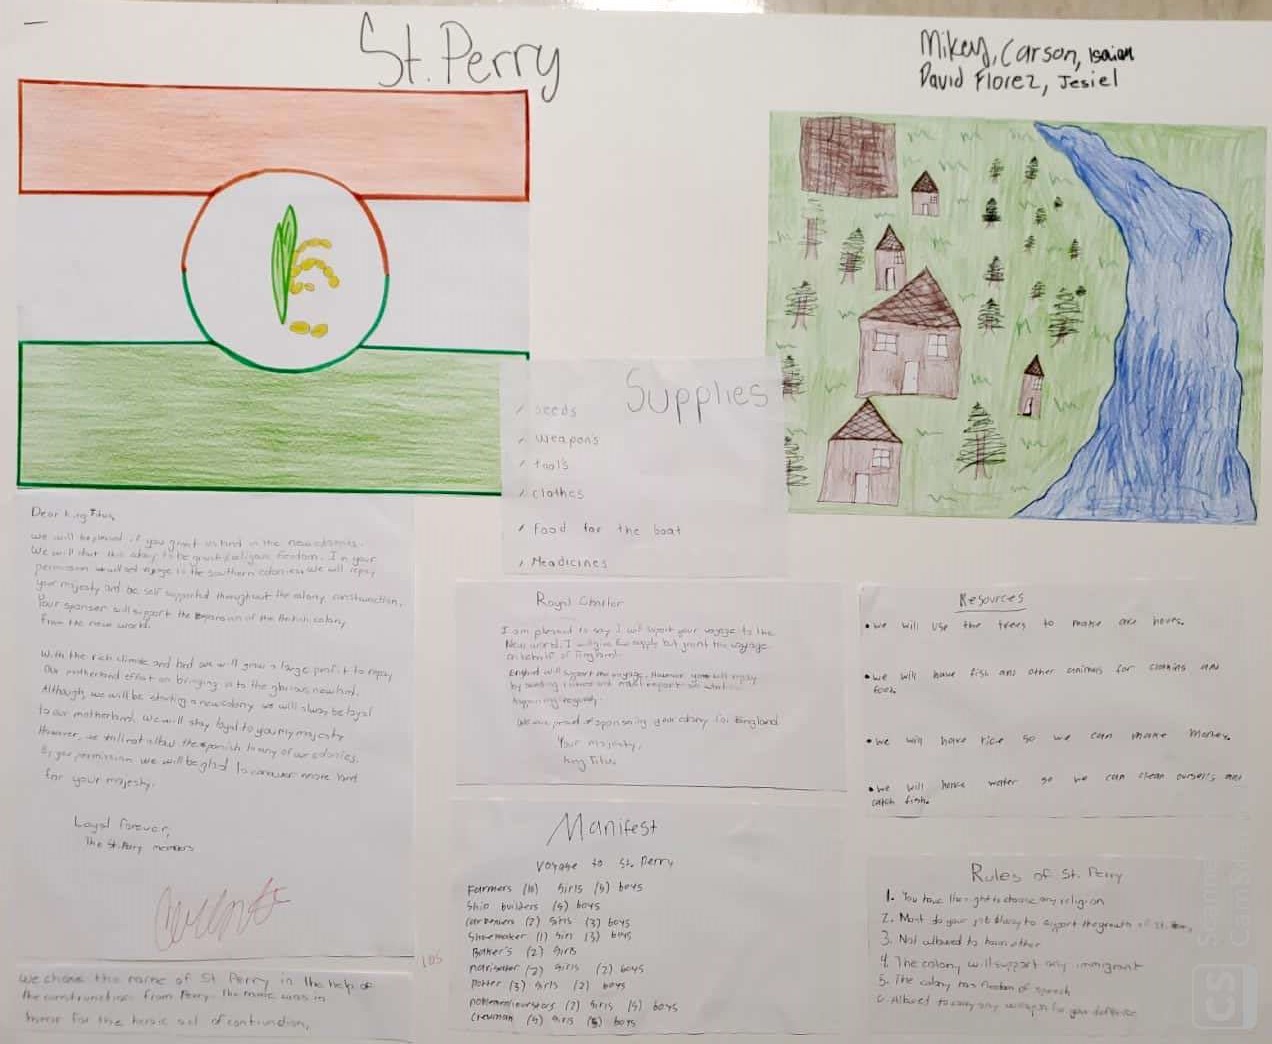 St. Perry
Mikey, Carson, Isaiah
David Florez, Jesiel
Supplies
seeds
weapons
tool's
clothes
Food for the boat
Meadicines
Dear King Titus,
we will be pleased if you grant us land in the new colonies.
We will start this colony to be granted religous feedom. In your
permission we will set voyage to the southern colonies. We will repay
your majesty and be self supported throughout the colony construction.
Your sponser will support the expansion of the British colony
from the new world.
With the rich climate and land we will grow a large profit to repay
our motherland effort on bringing us to the glorious new land.
Although, we will be starting a new colony we will always be loyal
to our motherland. We will stay loyal to you my majesty.
However, we will not allow the spanish to any of our colonies.
By your permission we will be glad to conquer more land
for your majesty.
Loyal forever,
The St. Perry members
We chose the name of St Perry in the help of
the construction from Perry. The name was in
honor for the heroic act of contrundion.
105
Royal Charter
I am pleased to say I will support your voyage to the
New world. I will give the supply but grant the voyage
on behalf of England.
England will support the voyage. However you will repay
by sending and report on what is
happening regularly.
We are proud of sponsering your colony for England
Your majesty,
King Titus
Manifest
Voyage to St. Perry
Farmers (10) Girls (5) boys
Ship builders (5) boys
carpenters (2) girls (3) boys
Shoemaker (1) girl (3) boys
Baker's (2) Girls
navigator (2) girls (2) boys
potter (3) Girls (2) boys
noblemen/investors (2) Girls (5) boys
crewman (5) Girls (5) boys
Resources
• we will use the trees to make are houes.
• we will have fish and other animals for clothing and
food.
• we will have rice so we can make money.
• we will have water so we can clean ourselfs and
catch fish.
Rules of St. Perry
1. You have the right to choose any religion
2. Must do your job to support the growth of St. Perry
3. Not allowed to harm other
4. The colony will support any immigrant
5. The colony has freedom of speech
6. Allowed to carry any weapon for your defense
CS